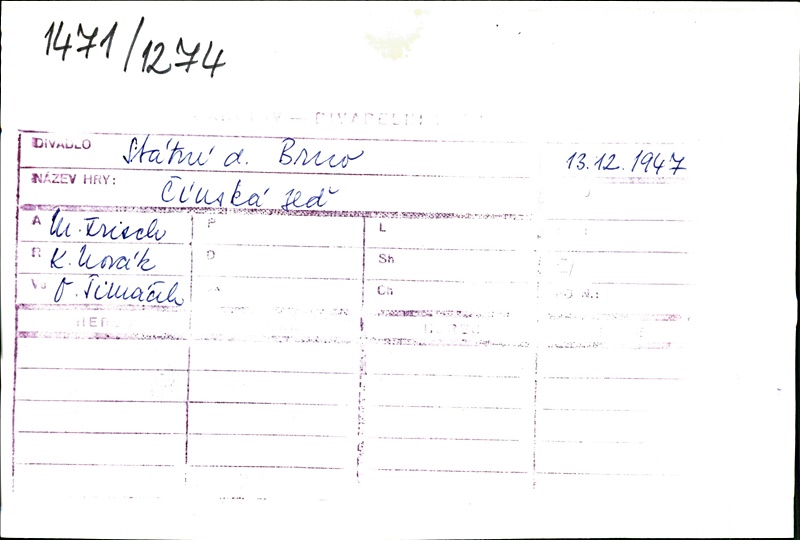 1471/1274
DIVADELNÍ
DIVADLO Státní d. Brno 13.12.1947
NÁZEV HRY: Čínská zeď
A M. Frisch P L
R K. Novák D Sh
V O. Šimáček Ch